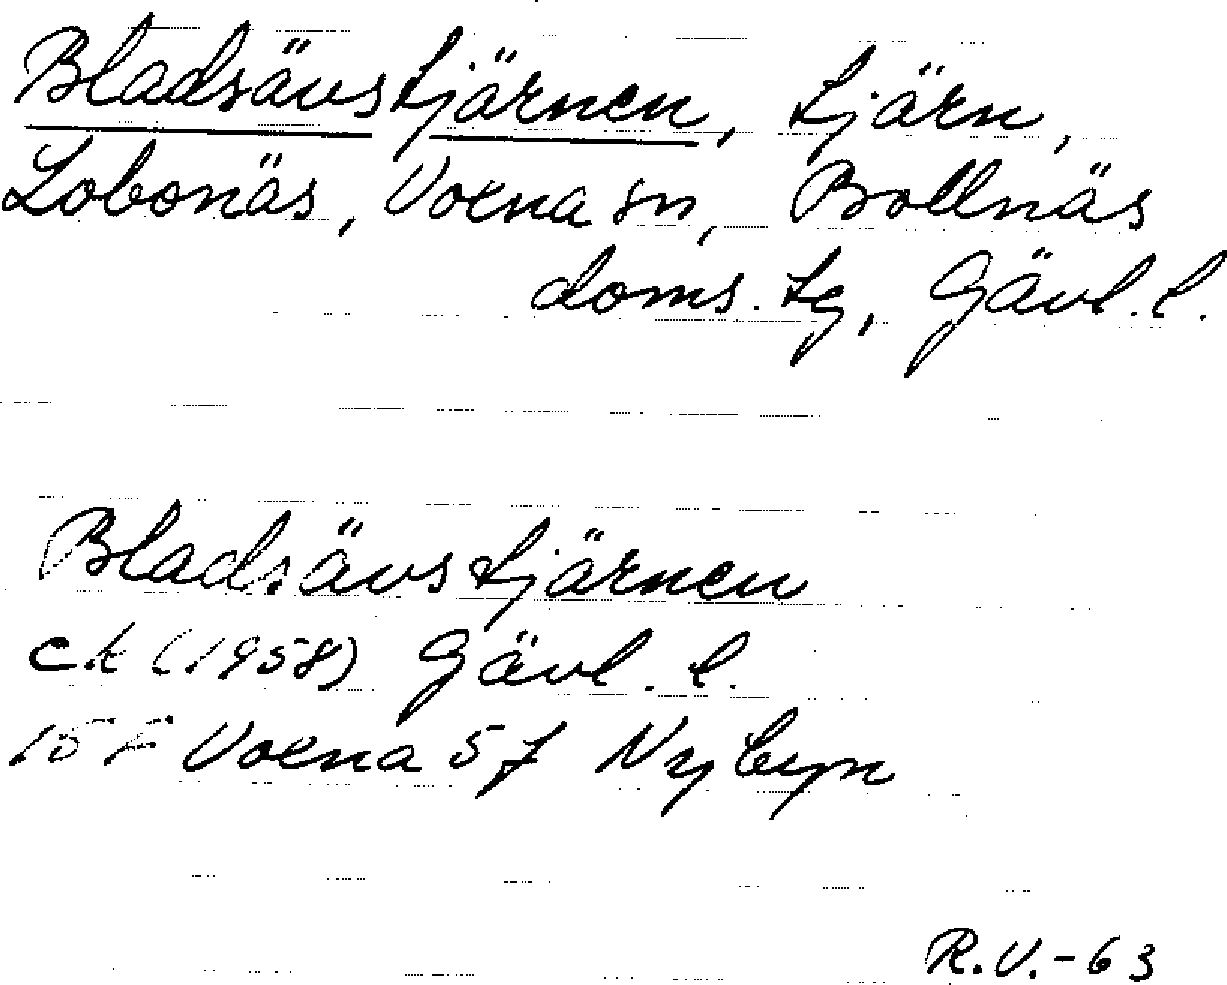 Bladsävstjärnen, tjärn,
Lobonäs, Voxna sn, Bollnäs
doms. tg, Gävl. l.
Bladsävstjärnen
ek (1958) Gävl. l.
15 F Voxna 5 f Nybyn
R.V.-63